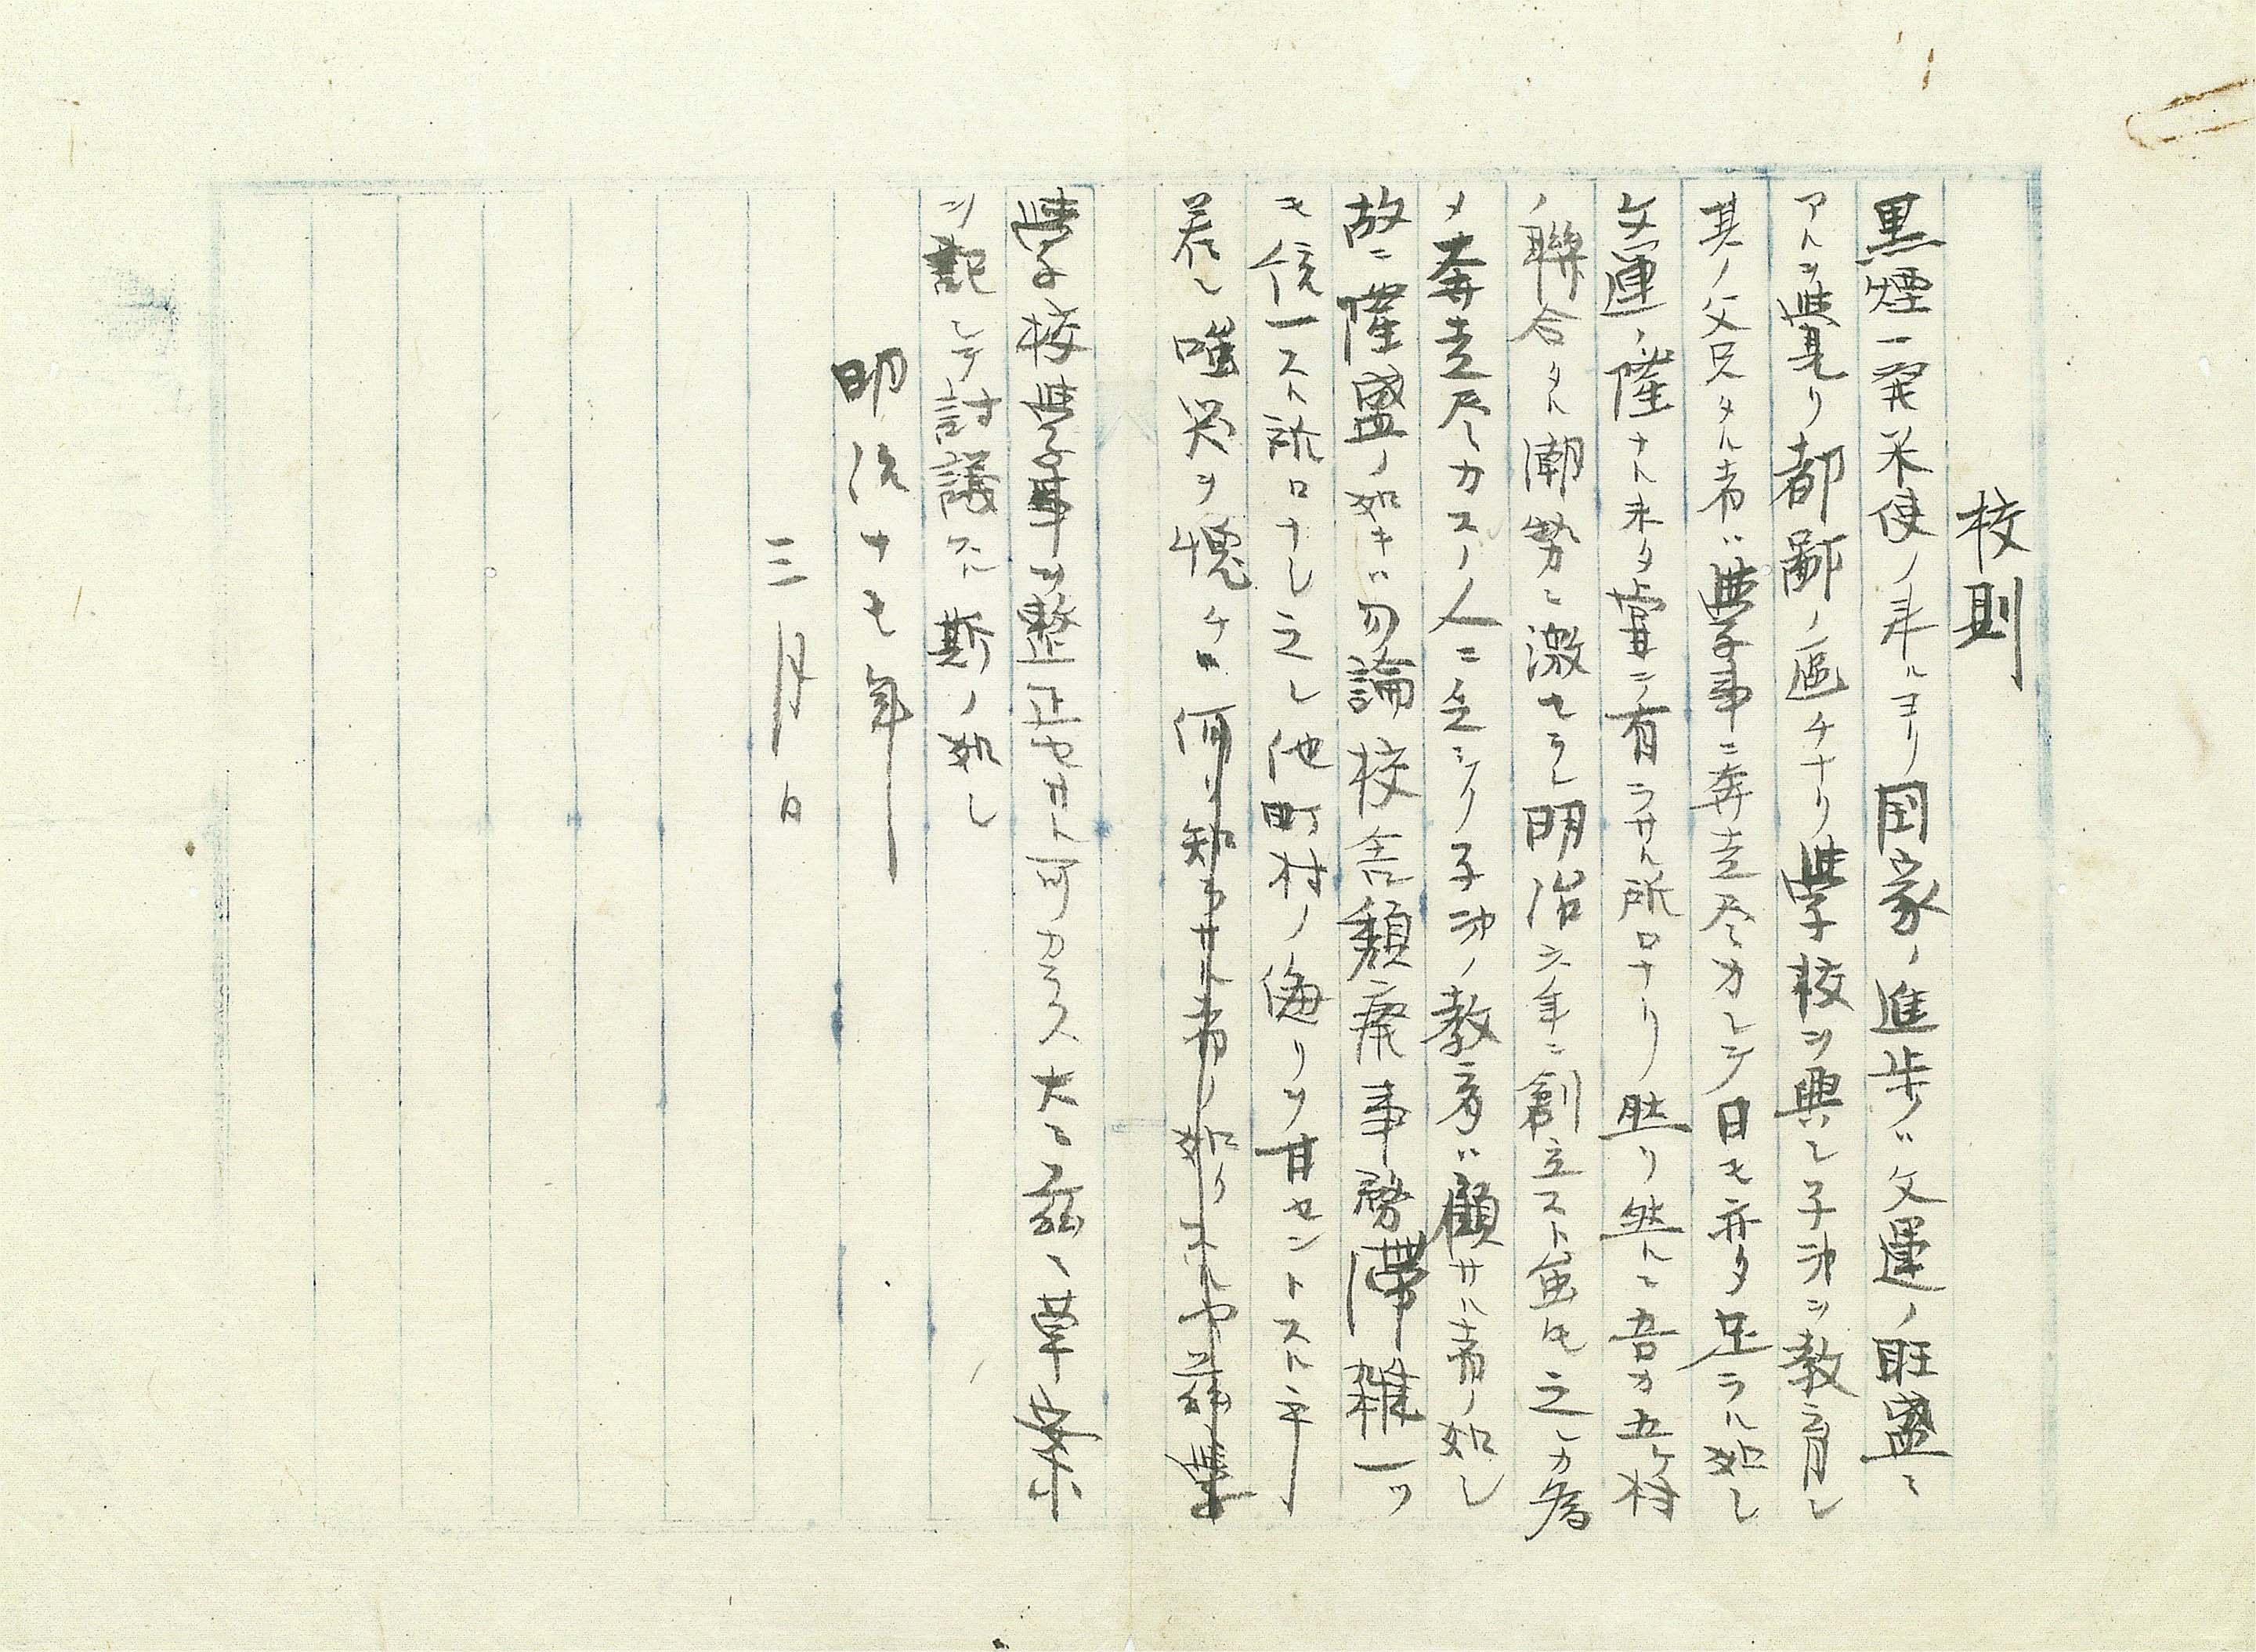 校則
黒煙一発米使ノ来ルヨリ国家ノ進歩ハ文運ノ旺盛ニ
アルヲ覚リ都鄙ノ區チナク學校ヲ興シ子弟ヲ教育シ
其ノ父兄タル者ハ學事ニ奔走尽力シテ日モ亦タ足ラル如シ
文運ノ隆ナル未タ嘗ニ有ラサル所ロナリ 然ルニ吾カ五ヶ村
ノ聯合タル潮勢ニ激セラレ明治六年ニ創立スト虽モ之レカ為
メ奔走尽力スノ人ニ乏シク子弟ノ教育ハ顧サル者ノ如シ
故ニ隆盛ノ如キハ勿論校舎頽廃事務滞雑一ツ
モ信一スル所ロナシ之レ他町村ノ侮リヲ甘セントスル乎
若シ嗤笑ヲ愧チ
學校學事ヲ整正セサル可カラス大ニ茲ノ草案
ヲ記シテ討議スル斯ノ如シ
明治十七年
三月 日